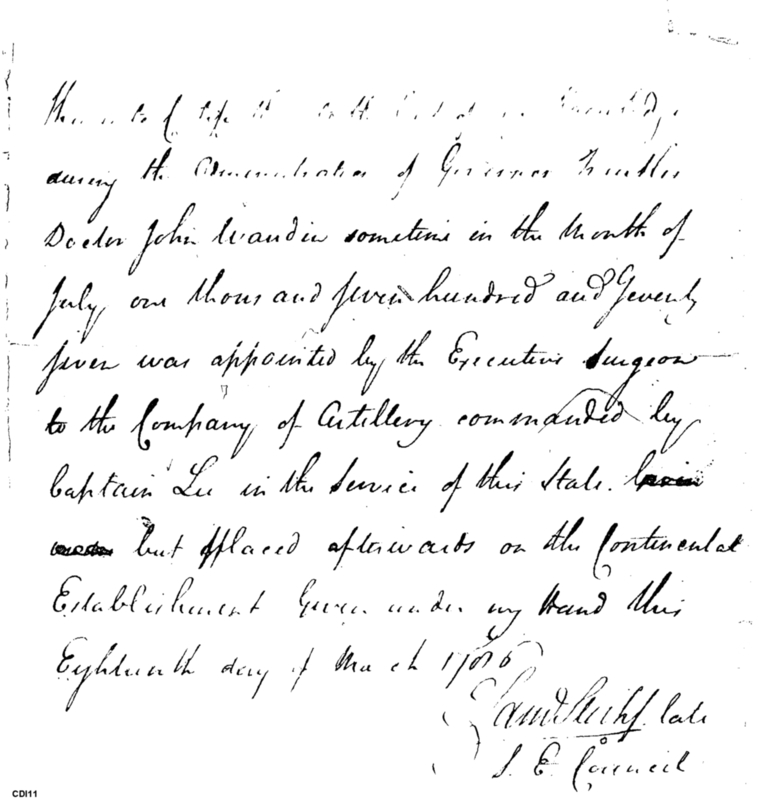 This is to Certify that to the best of my Knowledge
during the Administration of Governor
Doctor John sometime in the Month of
July, one thousand seven hundred and Seventy
seven was appointed by the Executive Surgeon
to the Company of Artillery commanded by
Captain Lee in the Service of this State.
but placed afterwards on the Continental
Establishment Given under my Hand this
Eighteenth day of March 1786
late
S. E. Council
CDI11